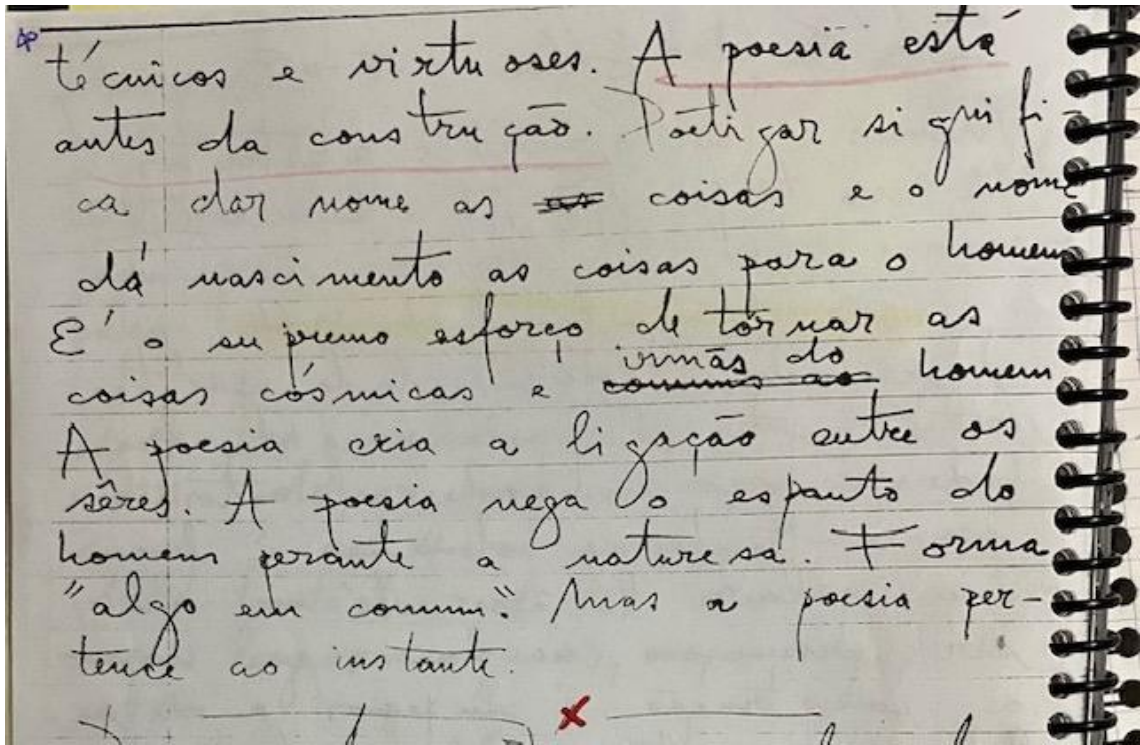 técnicos e virtuoses. A poesia está
antes da construção. Poetizar signifi-
ca dar nome as as coisas e o nome
dá nascimento as coisas para o homem
E' o supremo esforço de tornar as
irmãs do
coisas cósmicas e comuns ao homem
A poesia cria a ligação entre os
sêres. A poesia nega o espanto do
homem perante a naturesa. Forma
"algo em comum". Mas a poesia per-
tence ao instante.